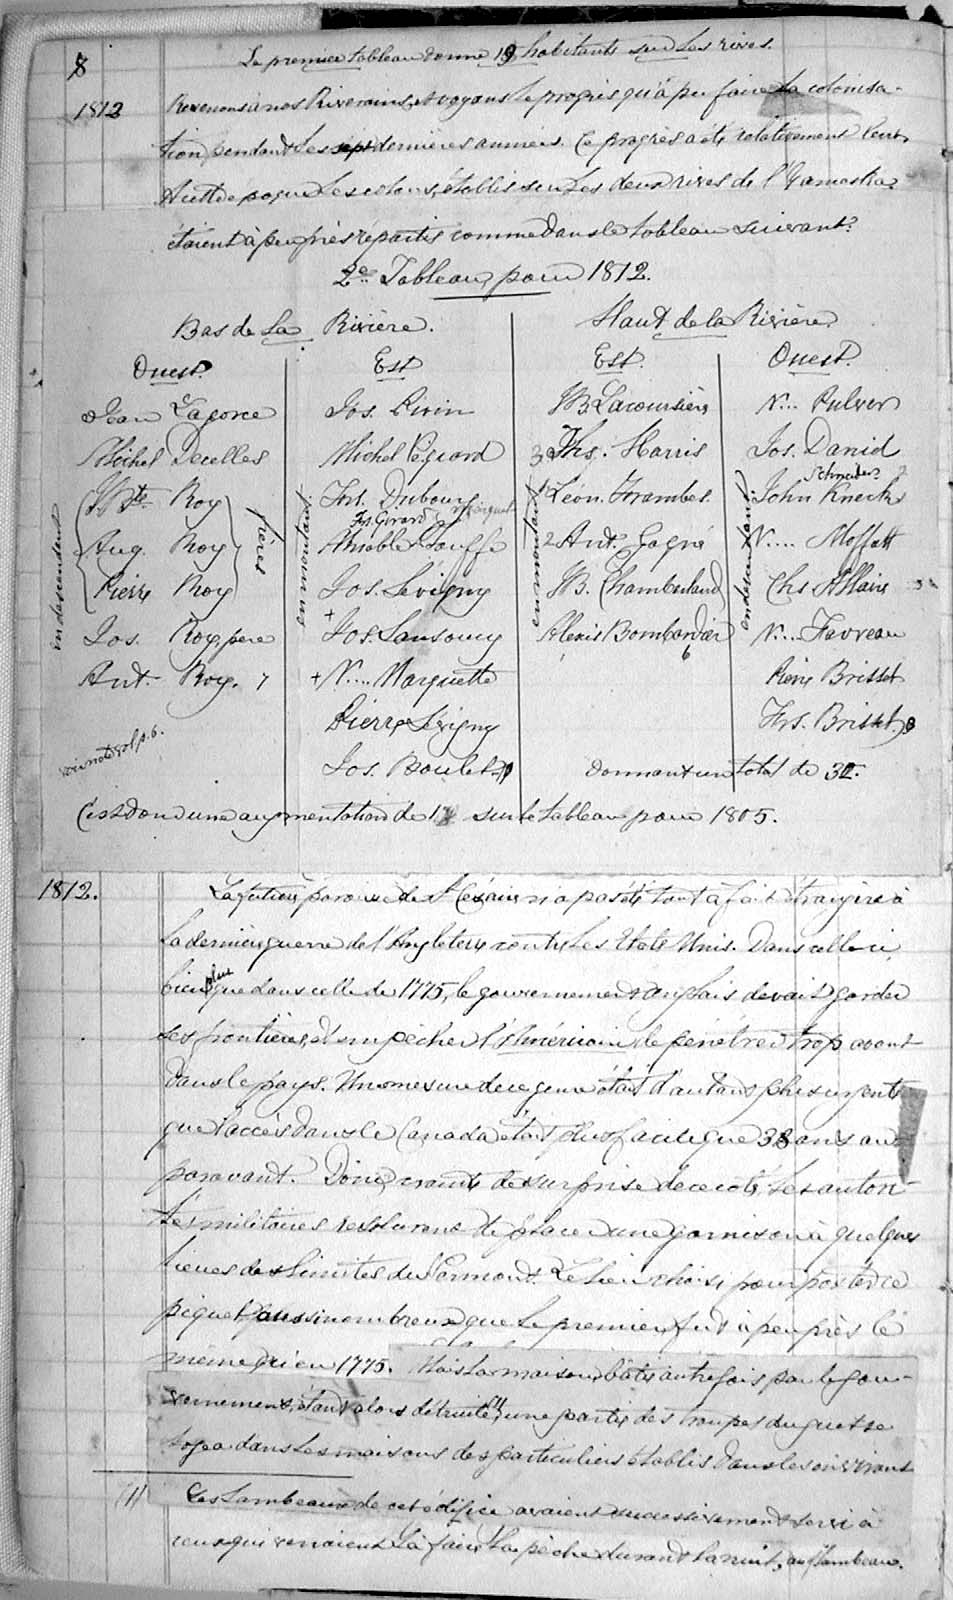 8
Le premier tableau donne 19 habitants sur les rives.
1812 Revenons à nos Riverains, et voyons le progrès qu'a pu faire la colonisa-
tion pendant les sept dernières années. Ce progrès a été relativement lent.
A cette époque les colons, établis sur les deux rives de l'Yamaska,
étaient à peu près répartis comme dans le tableau suivant:
2e. Tableau, pour 1812.
Bas de la Rivière. Haut de la Rivière.
Ouest. Est Est. Ouest.
Jean Lagorce Jos. Pivin JB. Lacoursière N... Pulver
Michel Decelles Michel Cognard 3 Ths. Harris Jos. David
Schneider
J. Bte. Roy Frs. Dubourg Léon. Frambes. John Kneck
Frs. Girard
Aug. Roy Amable Gouffe 2 Ant. Gagné N.... Moffatt
Pierre Roy Jos. Sévigny JB. Chamberland Chs Allaire
Jos. Roy, père + Jos. Sansoucy Alexis Bombardier 6 N... Favreau
Ant. Roy. 7 + N.... Marquette Pierre Brisset
Pierre Sévigny Frs. Brisset. 8
Jos. Boulet
en descendant
frères
en montant
en montant
en descendant
voir note vol p. 6.
donnant un total de 32.
C'est donc une augmentation de sur le tableau pour 1805.
1812. La future paroisse de St Césaire n'a pas été tout à fait étrangère à
la dernière guerre de l'Angleterre contre les Etats Unis. Dans celle-ci,
bien plus que dans celle de 1775, le gouvernement anglais devait garder
ses frontières, et empêcher l'Américain de pénétrer trop avant
dans le pays. Une mesure de ce genre était d'autant plus urgente
que l'accès dans le Canada était plus facile que 38 ans au-
paravant. Donc, crainte de surprise de ce côté, les autori-
tés militaires résolurent de placer une garnison à quelques
lieues des limites du Vermont. Le lieu choisi pour poster ce
piquet aussi nombreux que le premier, fut à peu près le
même qu'en 1775. Mais la maison bâtie autrefois par le gou-
vernement, étant alors détruite (1), une partie des troupes du guet se
logea dans les maisons des particuliers établis dans les environs
(1) Les lambeaux de cet édifice avaient successivement servi à
ceux qui venaient là faire la pêche durant la nuit, au flambeau.